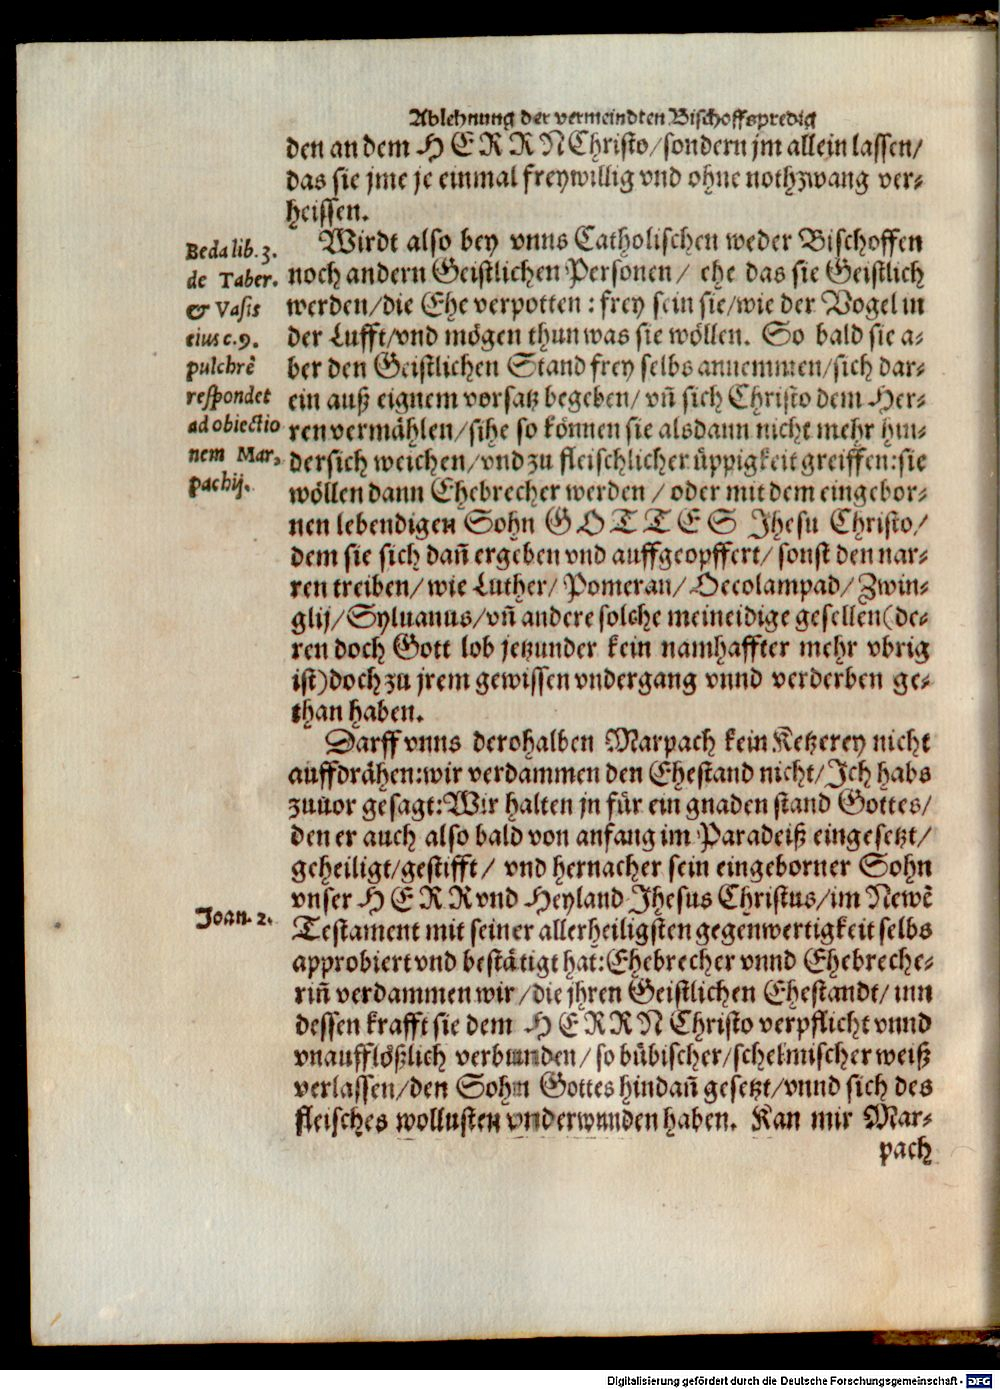 Ablehnung der vermeindten Bischoffspredig
den an dem HERRN Christo/sondern jm allein lassen/
das sie jme je einmal freywillig vnd ohne nothzwang ver-
heissen.
Wirdt also bey vnns Catholischen weder Bischoffen
noch andern Geistlichen Personen/ ehe das sie Geistlich
werden/die Ehe verpotten: frey sein sie/wie der Vogel in
der Lufft/vnd mögen thun was sie wöllen. So bald sie a-
ber den Geistlichen Stand frey selbs annemmen/sich dar-
ein auß eignem vorsatz begeben/ vñ sich Christo dem Her-
ren vermählen/sihe so können sie alsdann nicht mehr hin-
dersich weichen/vnd zu fleischlicher üppigkeit greiffen:sie
wöllen dann Ehebrecher werden / oder mit dem eingebor-
nen lebendigen Sohn GOTTES Jhesu Christo/
dem sie sich dañ ergeben vnd auffgeopffert/ sonst den nar-
ren treiben/ wie Luther/ Pomeran/ Oecolampad/ Zwin-
glij/ Syluanus/vñ andere solche meineidige gesellen(de-
ren doch Gott lob jetzunder kein namhaffter mehr vbrig
ist)doch zu jrem gewissen vndergang vnnd verderben ge-
than haben.
Darff vnns derohalben Marpach kein Ketzerey nicht
auffdrähen:wir verdammen den Ehestand nicht/Ich habs
zuuor gesagt:Wir halten jn für ein gnaden stand Gottes/
den er auch also bald von anfang im Paradeiß eingesetzt/
geheiligt/gestifft/ vnd hernacher sein eingeborner Sohn
vnser HERR vnd Heyland Jhesus Christus/im Newẽ
Testament mit seiner allerheiligsten gegenwertigkeit selbs
approbiert vnd bestätigt hat:Ehebrecher vnnd Ehebreche-
riñ verdammen wir/die jhren Geistlichen Ehestandt/ inn
dessen krafft sie dem HERRN Christo verpflicht vnnd
vnaufflößlich verbunden/ so bübischer/schelmischer weiß
verlassen/den Sohn Gottes hindañ gesetzt/vnnd sich des
fleisches wollusten vnderwunden haben. Kan mir Mar-
pach
Beda lib. 3.
de Taber.
& Vasis
eius c. 9.
pulchrè
respondet
ad obiectio
nem Mar-
pachij.
Joan. 2.
Digitalisierung gefördert durch die Deutsche Forschungsgemeinschaft - DFG